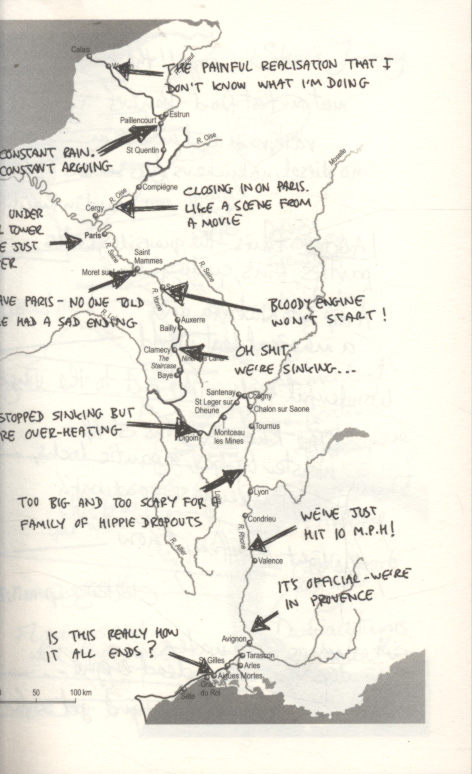 Calais
THE PAINFUL REALISATION THAT I
DON'T KNOW WHAT I'M DOING
Estrun
Paillencourt
R. Oise
St Quentin
CONSTANT RAIN.
CONSTANT ARGUING
Compiégne
R. Oise
CLOSING IN ON PARIS.
LIKE A SCENE FROM
A MOVIE
Cergy
UNDER
TOWER
JUST
Paris
R. Seine
Saint
Mammes
Moret sur
R. Seine
R. Yonne
PARIS - NO ONE TOLD
HAD A SAD ENDING
BLOODY ENGINE
WON'T START!
Auxerre
Bailly
Clamecy
The
Staircase
Baye
OH SHIT,
WE'RE SINKING...
Santenay
Chagny
St Leger sur
Dheune
Chalon sur Saone
STOPPED SINKING BUT
OVER-HEATING
Digoin
Montceau
les Mines
Tournus
TOO BIG AND TOO SCARY FOR A
FAMILY OF HIPPIE DROPOUTS
Lyon
Condrieu
R. Rhone
R. Allier
WE'VE JUST
HIT 10 M.P.H!
Valence
IT'S OFFICIAL - WE'RE
IN PROVENCE
IS THIS REALLY HOW
IT ALL ENDS?
Avignon
Tarascon
St Gilles
Arles
Aigues Mortes
du Roi
Sète
50 100 km
Moselle